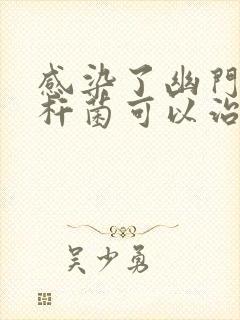 感染了幽門
杆菌可以治
吴少勇